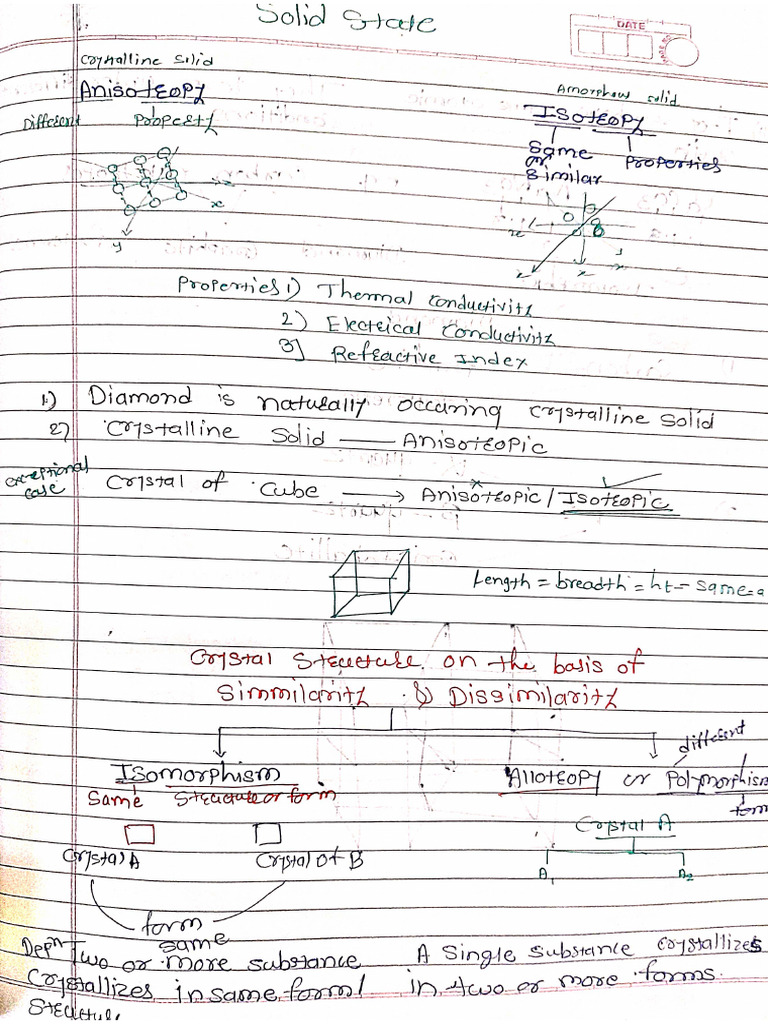 Solid State
DATE
Crystalline solid
Anisotropy
Different Property
x
y
Amorphous solid
Isotropy
Same Properties
or
Similar
x
x
Properties 1) Thermal conductivity
2) Electrical conductivity
3] Refractive Index
1.) Diamond is naturally occuring crystalline solid
2) Crystalline Solid — Anisotropic
exceptional case Crystal of cube → Anisotropic / Isotropic
Length = breadth = ht = same = a
Crystal structure on the basis of
Simmilarity & Dissimilarity
different
Isomorphism Allotropy or Polymorphism
Same structure or form form
Crystal A
Crystal A Crystal of B A1 A2
form
same
Defn Two or more substance A single substance crystallizes
Crystallizes in same form / in two or more forms.
Structure